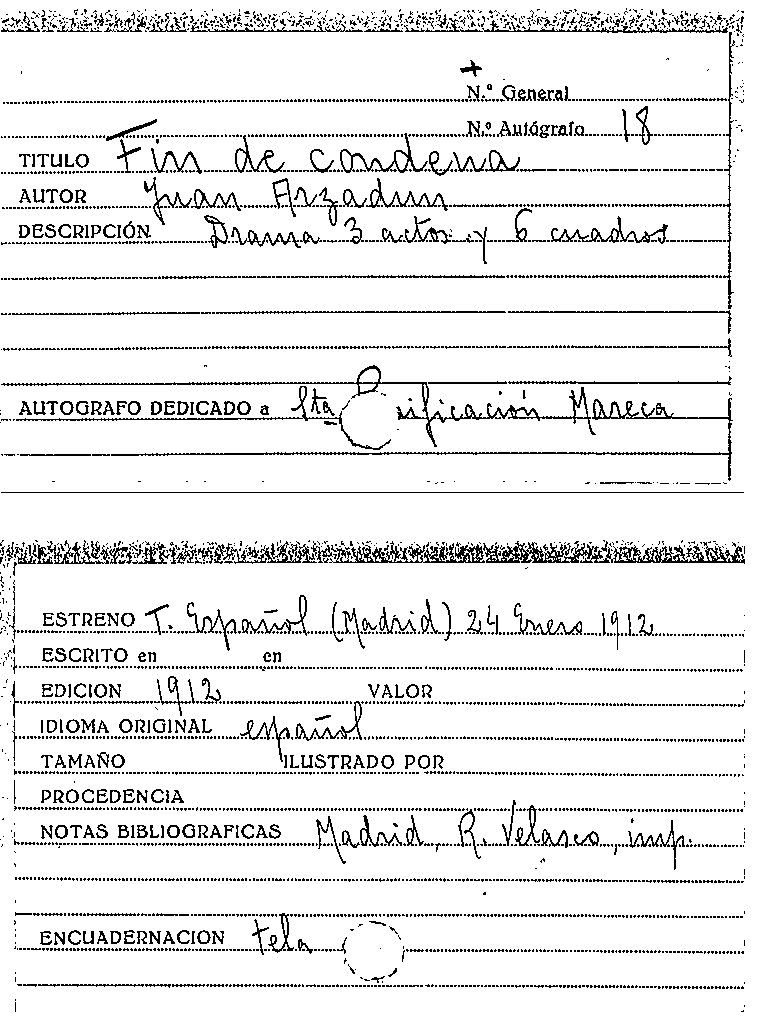 +
N.º General
N.º Autógrafo 18
TITULO Fin de condena
AUTOR Juan Arzadun
DESCRIPCIÓN Drama 3 actos y 6 cuadros
AUTOGRAFO DEDICADO a Sta Mareca
ESTRENO T. Español (Madrid) 24 Enero 1912
ESCRITO en en
EDICION 1912 VALOR
IDIOMA ORIGINAL español
TAMAÑO ILUSTRADO POR
PROCEDENCIA
NOTAS BIBLIOGRAFICAS Madrid, R. Velasco, imp.
ENCUADERNACION tela